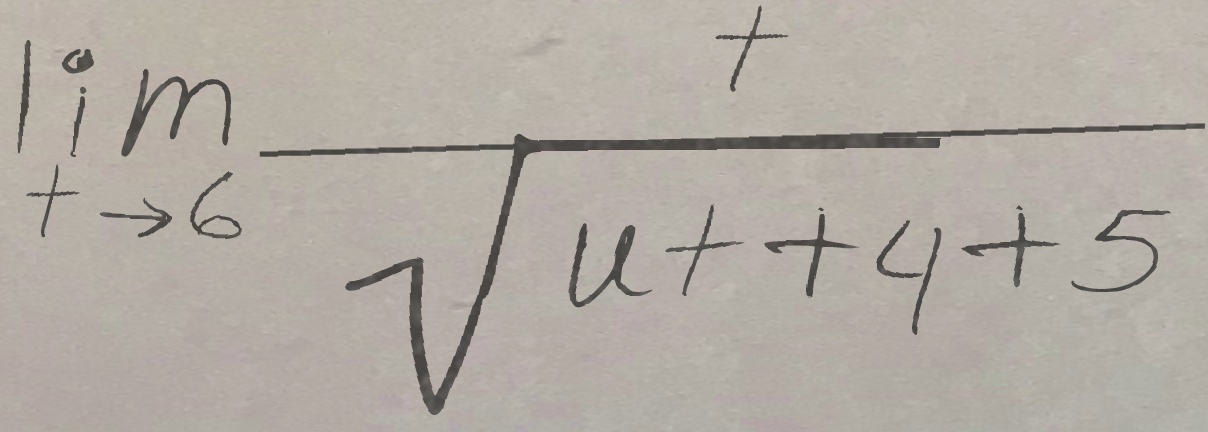 \lim_{t \to 6} \frac{t}{\sqrt{ut+4}+5}